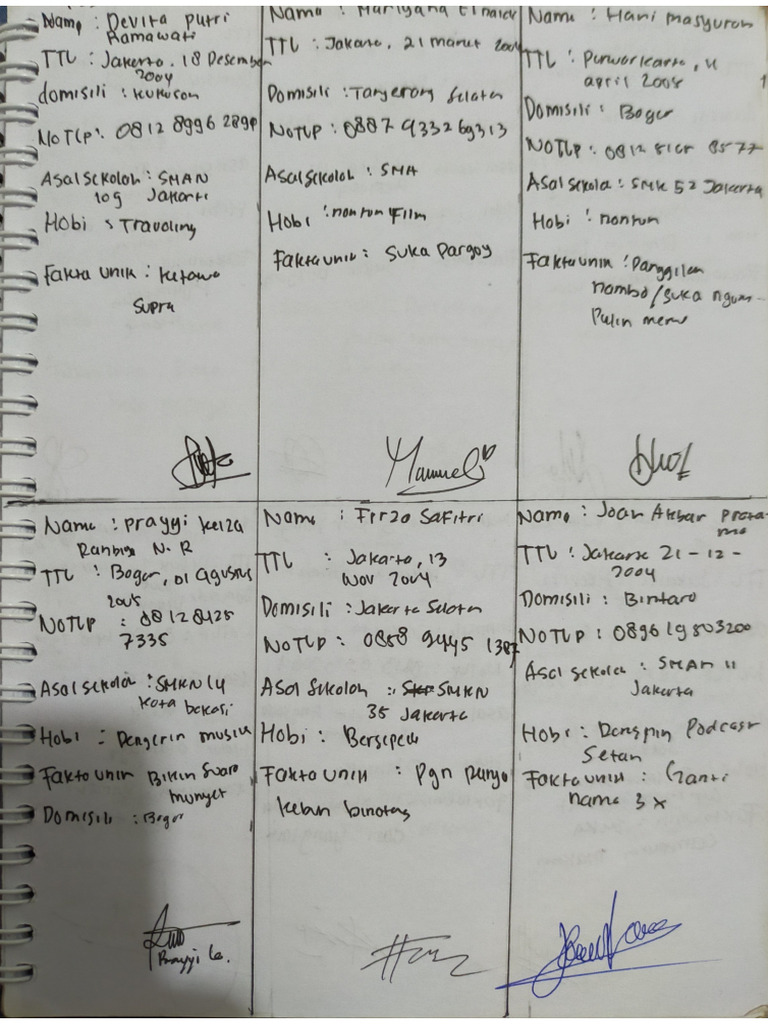 Nama : Devita Putri
Ramawati
TTL : Jakarta, 18 Desember
2004
domisili : kukusan
No TLP : 0812 8996 2890
Asal sekolah : SMAN
109 Jakarta
Hobi : Travoling
Fakta unik : ketawa
Supra
Nama :
TTL : Jakarta, 21 maret 2004
Domisili : Tangerang Selatan
NoTLP : 0887 9332 69313
Asal sekolah : SMA
Hobi : nontun Film
Fakta unik : Suka Pargoy
Nama : Hani masyuroh
TTL : Purwakarta, 11
april 2005
Domisili : Bogor
NoTLP : 0812 8577
Asal sekola : SMK 52 Jakarta
Hobi : nontun
Fakta unik : Panggilan
nambo / suka ngum-
Pulin
Nama : Prayyi keiza
N. R
TTL : Bogor, 01 Agustus
2005
NoTLP : 0812 8425
7335
Asal sekola : SMKN 14
kota bekasi
Hobi : Dengerin musik
Fakta unik Bikin Suara
munyet
Domisili : Bogor
Prayyi
Nama : Firza Safitri
TTL : Jakarta, 13
Nov 2004
Domisili : Jakarta Selatan
NoTLP : 0858 9445 1387
Asal Sekolah : SMKN
35 Jakarta
Hobi : Bersepeda
Fakta unik : Pgn punya
kebun binatang
Nama : Joan Akbar Prata-
ma
TTL : Jakarta 21-12-
2004
Domisili : Bintaro
NoTLP : 0896 19803200
Asal sekola : SMAN 11
Jakarta
Hobi : Podcast
Setan
Fakta unik : Ganti
nama 3x